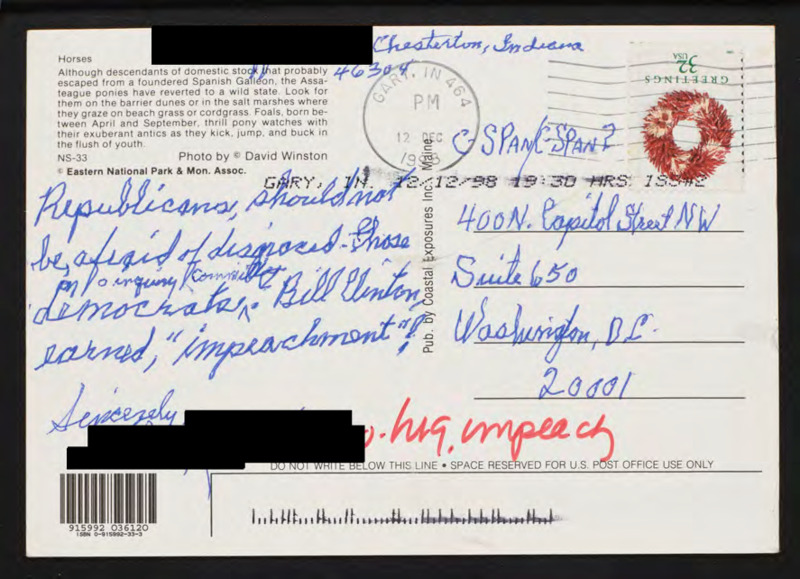 Chesterton, Indiana
46304
Horses
Although descendants of domestic stock that probably
escaped from a foundered Spanish Galleon, the Assa-
teague ponies have reverted to a wild state. Look for
them on the barrier dunes or in the salt marshes where
they graze on beach grass or cordgrass. Foals, born be-
tween April and September, thrill pony watches with
their exuberant antics as they kick, jump, and buck in
the flush of youth.
NS-33 Photo by © David Winston
© Eastern National Park & Mon. Assoc.
GARY, IN 464
PM
12 DEC
1998
32 USA
GREETINGS
GARY, IN. 12/12/98 19:30 HRS
C-SPAN/C-SPAN 2
400 N. Capitol Street NW
Suite 650
Washington, D.C.
20001
Republicans, should not
be, afraid of disgraced those
inquiry committee
democrats. Bill Clinton,
earned, "impeachment"!
Sincerely
impeach
Pub. by Coastal Exposures Inc., Maine
DO NOT WRITE BELOW THIS LINE • SPACE RESERVED FOR U.S. POST OFFICE USE ONLY
915992 036120
ISBN 0-915992-33-3